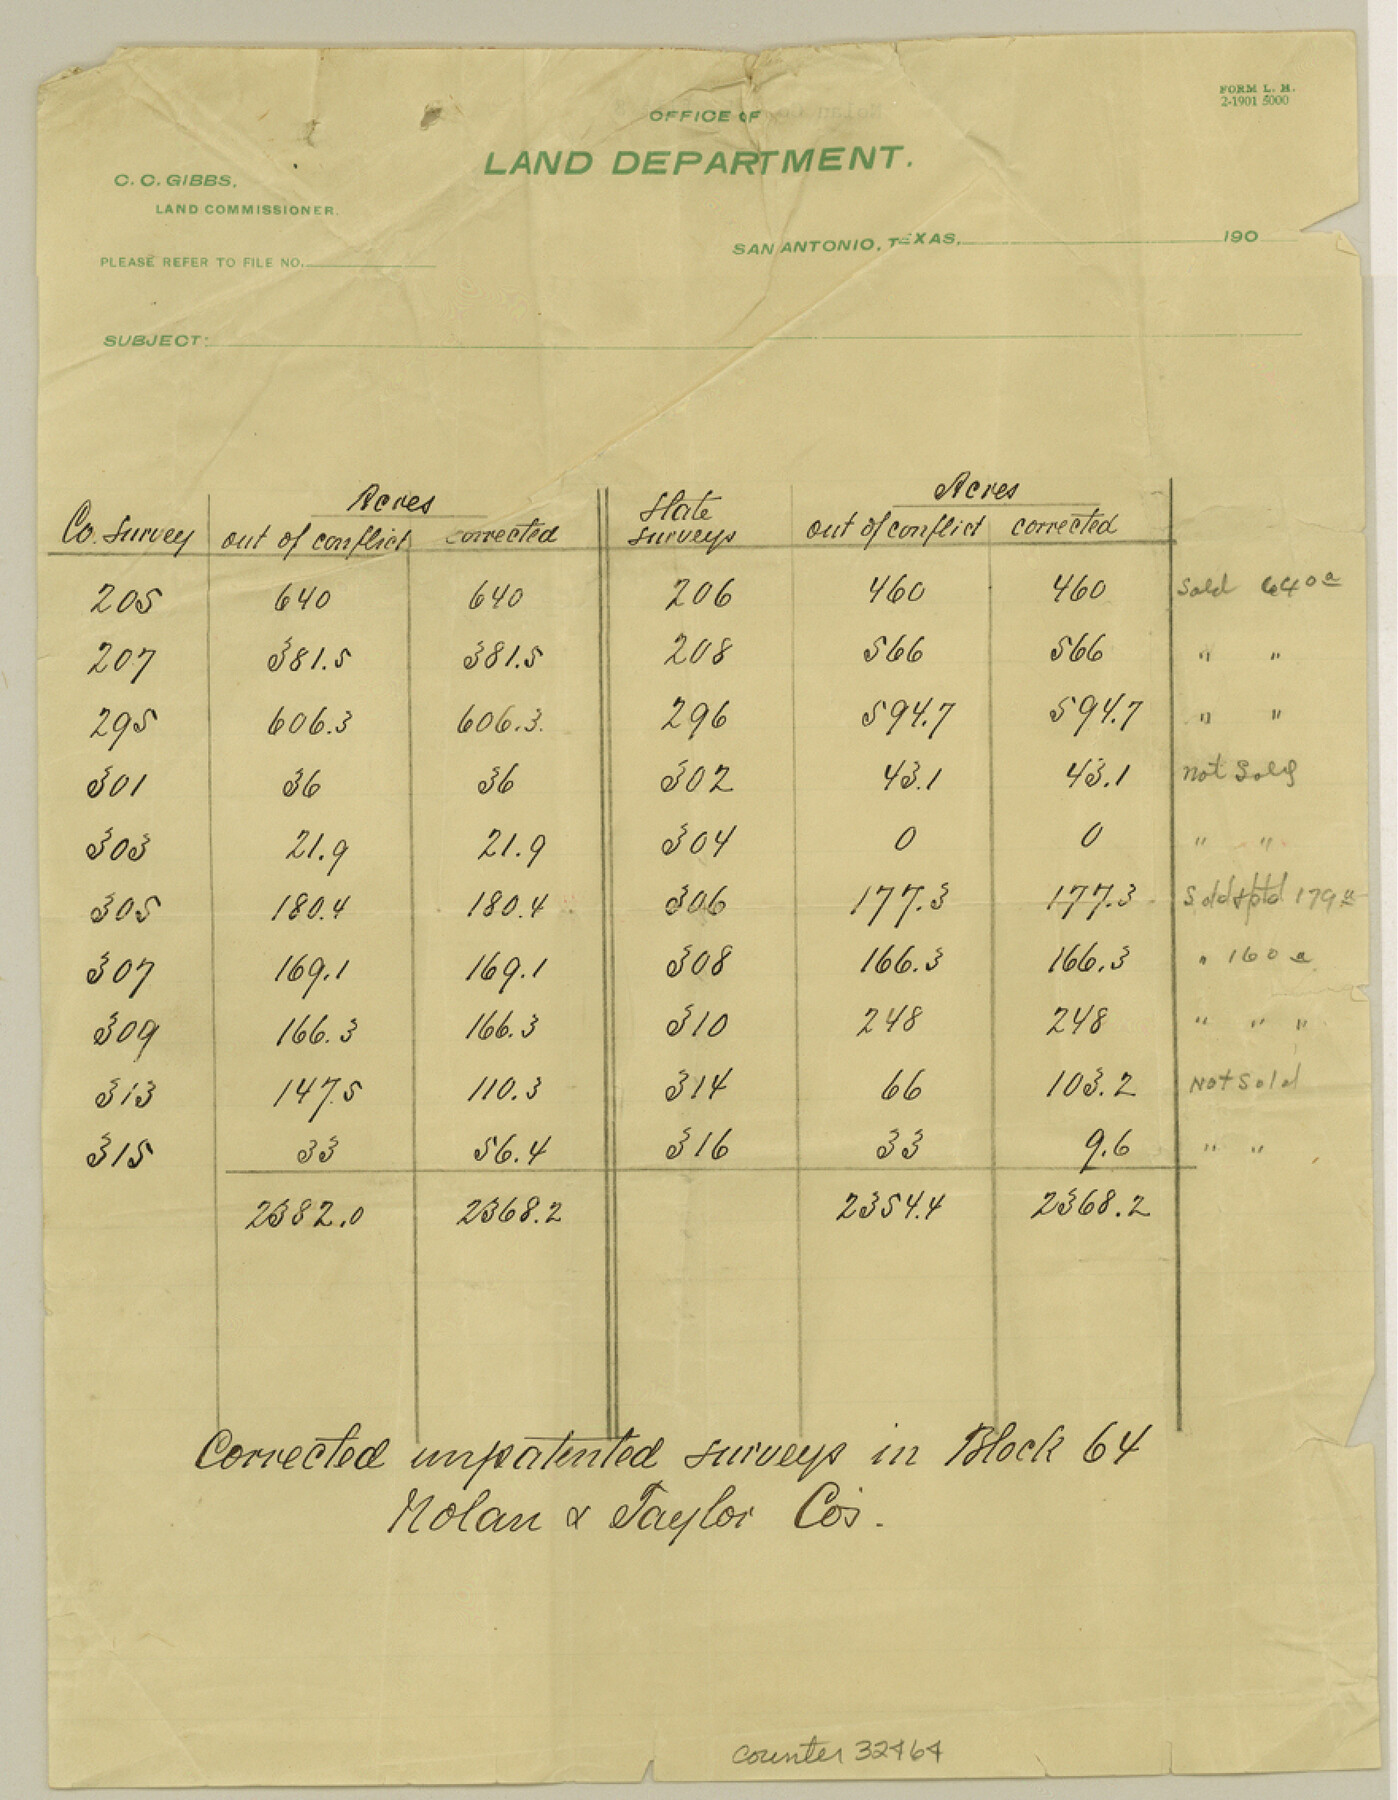 FORM L. H.
2-1901 5000
OFFICE OF
LAND DEPARTMENT.
C. C. GIBBS,
LAND COMMISSIONER.
SAN ANTONIO, TEXAS, 190
PLEASE REFER TO FILE NO.
SUBJECT:
Acres Acres
Co. Survey out of conflict corrected State surveys out of conflict corrected
205 640 640 206 460 460 Sold 640 a
207 381.5 381.5 208 566 566 " "
295 606.3 606.3 296 594.7 594.7 " "
301 36 36 302 43.1 43.1 Not Sold
303 21.9 21.9 304 0 0 " "
305 180.4 180.4 306 177.3 177.3 Sold & ptd 179 a
307 169.1 169.1 308 166.3 166.3 " 160 a
309 166.3 166.3 310 248 248 " " "
313 147.5 110.3 314 66 103.2 Not Sold
315 33 56.4 316 33 9.6 " "
2382.0 2368.2 2354.4 2368.2
Corrected unpatented surveys in Block 64
Nolan & Taylor Co's.
counter 32464